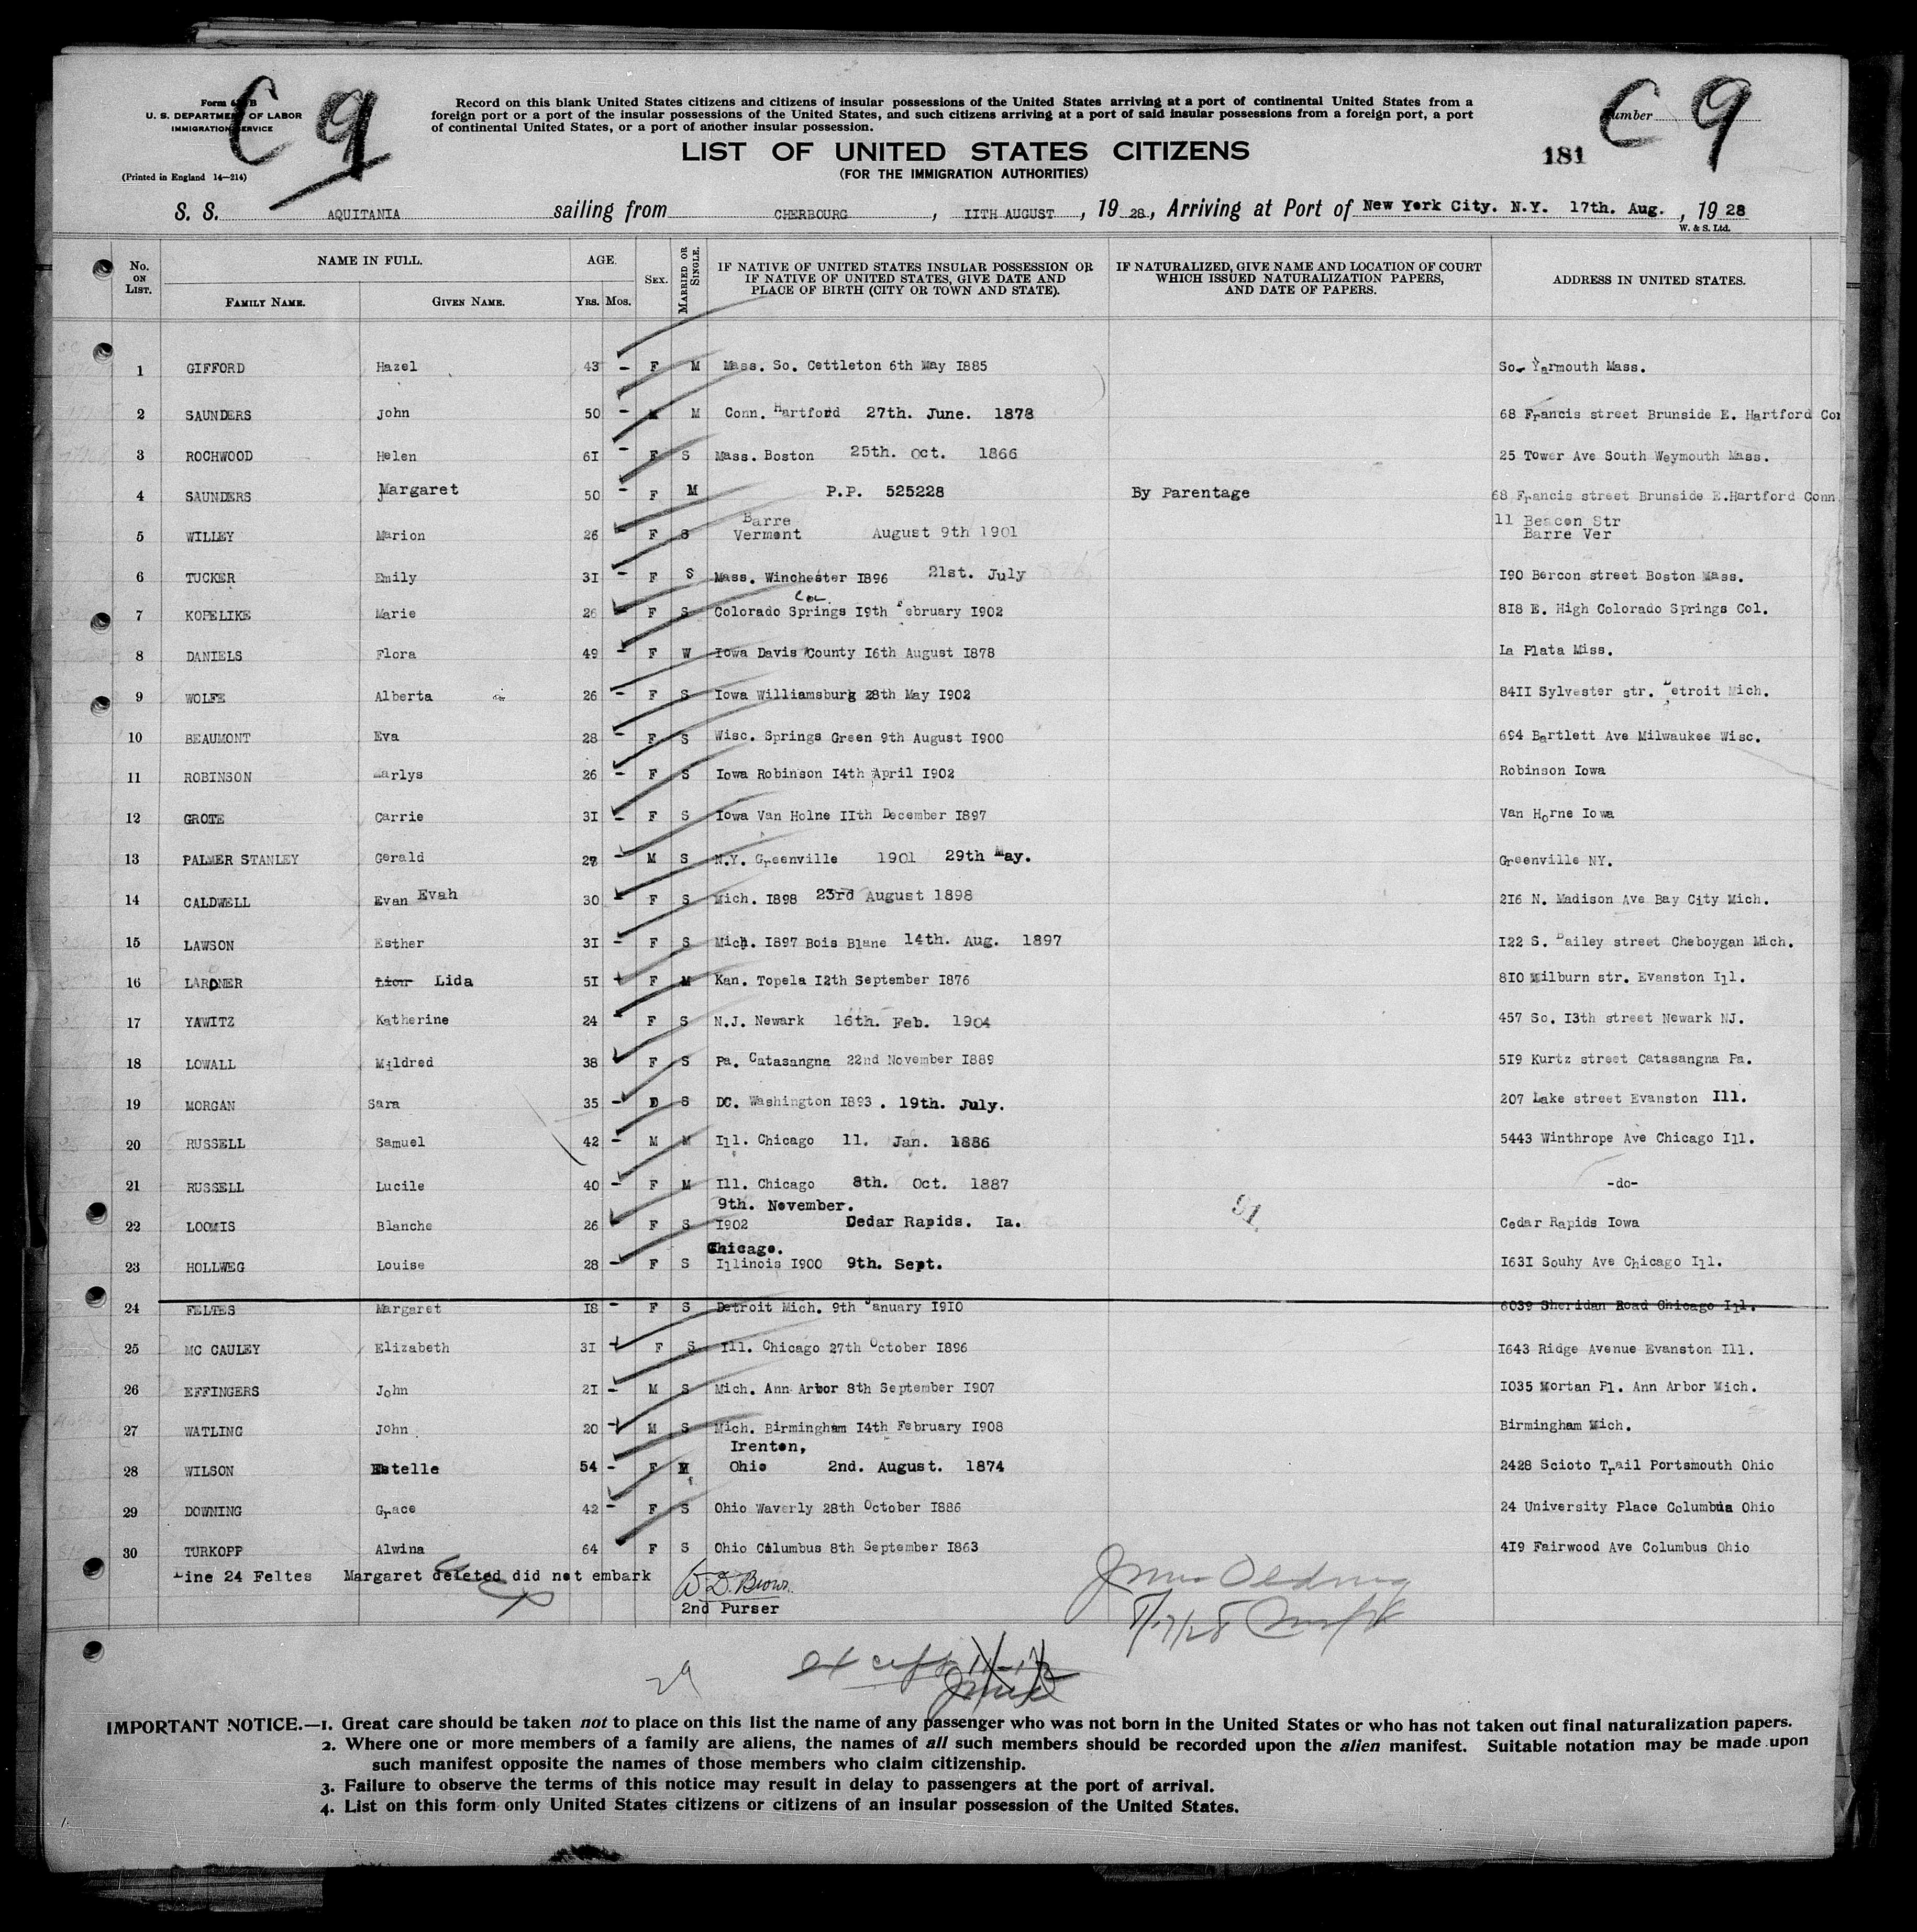 C 9
C 9
Form 630 B
U. S. DEPARTMENT OF LABOR
IMMIGRATION SERVICE
(Printed in England 14—214)
Record on this blank United States citizens and citizens of insular possessions of the United States arriving at a port of continental United States from a
foreign port or a port of the insular possessions of the United States, and such citizens arriving at a port of said insular possessions from a foreign port, a port
of continental United States, or a port of another insular possession.
Number
LIST OF UNITED STATES CITIZENS
(FOR THE IMMIGRATION AUTHORITIES)
181
S. S. AQUITANIA sailing from CHERBOURG, IITH AUGUST, 19 28, Arriving at Port of New York City. N.Y. 17th. Aug., 19 28
W. & S. Ltd.
No. ON LIST. NAME IN FULL. AGE. SEX. MARRIED OR SINGLE. IF NATIVE OF UNITED STATES INSULAR POSSESSION OR IF NATIVE OF UNITED STATES, GIVE DATE AND PLACE OF BIRTH (CITY OR TOWN AND STATE). IF NATURALIZED, GIVE NAME AND LOCATION OF COURT WHICH ISSUED NATURALIZATION PAPERS, AND DATE OF PAPERS. ADDRESS IN UNITED STATES.
FAMILY NAME. GIVEN NAME. YRS. MOS.
1 GIFFORD Hazel 43 - F M Mass. So. Cettleton 6th May I885 So. Yarmouth Mass.
2 SAUNDERS John 50 - M M Conn. Hartford 27th. June. 1878 68 Francis street Brunside E. Hartford Con
3 ROCHWOOD Helen 6I - F S Mass. Boston 25th. Oct. 1866 25 Tower Ave South Weymouth Mass.
4 SAUNDERS Margaret 50 - F M P.P. 525228 By Parentage 68 Francis street Brunside E.Hartford Conn.
Barre 11 Beacon Str
5 WILLEY Marion 26 - F S Vermont August 9th 1901 Barre Ver
6 TUCKER Emily 3I - F S Mass. Winchester I896 21st. July I90 Bercon street Boston Mass.
Col
7 KOPELIKE Marie 26 - F S Colorado Springs I9th February I902 8I8 E. High Colorado Springs Col.
8 DANIELS Flora 49 - F W Iowa Davis County I6th August I878 La Plata Miss.
9 WOLFE Alberta 26 - F S Iowa Williamsburg 28th May I902 84II Sylvester str. Detroit Mich.
10 BEAUMONT Eva 28 - F S Wisc. Springs Green 9th August I900 694 Bartlett Ave Milwaukee Wisc.
11 ROBINSON Marlys 26 - F S Iowa Robinson I4th April I902 Robinson Iowa
12 GROTE Carrie 3I - F S Iowa Van Holne IIth December I897 Van Horne Iowa
13 PALMER STANLEY Gerald 27 - M S N.Y. Greenville 1901 29th May. Greenville NY.
14 CALDWELL Evan Evah 30 - F S Mich. I898 23rd August 1898 2I6 N. Madison Ave Bay City Mich.
15 LAWSON Esther 3I - F S Mich. I897 Bois Blane 14th. Aug. 1897 I22 S. Bailey street Cheboygan Mich.
16 LARDNER Lion Lida 5I - F M Kan. Topela I2th September I876 8I0 Milburn str. Evanston Ill.
17 YAWITZ Katherine 24 - F S N.J. Newark 16th. Feb. 1904 457 So. I3th street Newark NJ.
18 LOWALL Mildred 38 - F S Pa. Catasangna 22nd November I889 5I9 Kurtz street Catasangna Pa.
19 MORGAN Sara 35 - D S DC. Washington I893 . 19th. July. 207 Lake street Evanston Ill.
20 RUSSELL Samuel 42 - M M Ill. Chicago 11. Jan. 1886 5443 Winthrope Ave Chicago Ill.
21 RUSSELL Lucile 40 - F M Ill. Chicago 8th. Oct. 1887 -do-
9th. November. 91.
22 LOOMIS Blanche 26 - F S I902 Cedar Rapids. Ia. Cedar Rapids Iowa
Chicago.
23 HOLLWEG Louise 28 - F S Illinois I900 9th. Sept. I63I Souhy Ave Chicago Ill.
24 FELTES Margaret I8 - F S Detroit Mich. 9th January I9I0 6039 Sheridan Road Chicago Ill.
25 MC CAULEY Elizabeth 3I - F S Ill. Chicago 27th October I896 I643 Ridge Avenue Evanston Ill.
26 EFFINGERS John 2I - M S Mich. Ann Arbor 8th September I907 I035 Mortan Pl. Ann Arbor Mich.
27 WATLING John 20 - M S Mich. Birmingham I4th February I908 Birmingham Mich.
Irenton,
28 WILSON Estelle 54 - F M Ohio 2nd. August. 1874 2428 Scioto Trail Portsmouth Ohio
29 DOWNING Grace 42 - F S Ohio Waverly 28th October I886 24 University Place Columbus Ohio
30 TURKOPP Alwina 64 F S Ohio Columbus 8th September I863 4I9 Fairwood Ave Columbus Ohio
Line 24 Feltes Margaret deleted did not embark W D. Brown
2nd Purser
8/17/28
29
IMPORTANT NOTICE.—1. Great care should be taken not to place on this list the name of any passenger who was not born in the United States or who has not taken out final naturalization papers.
2. Where one or more members of a family are aliens, the names of all such members should be recorded upon the alien manifest. Suitable notation may be made upon
such manifest opposite the names of those members who claim citizenship.
3. Failure to observe the terms of this notice may result in delay to passengers at the port of arrival.
4. List on this form only United States citizens or citizens of an insular possession of the United States.